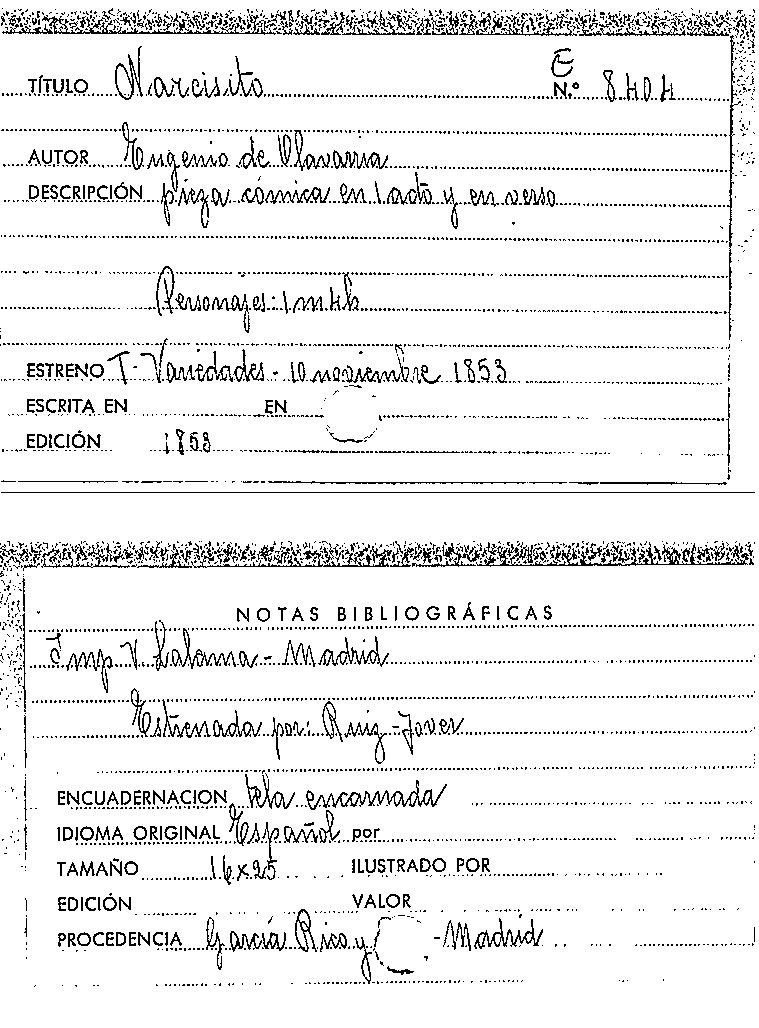 E
TÍTULO Narcisito N.º 8404
AUTOR Eugenio de Olavarria
DESCRIPCIÓN pieza cómica en 1 acto y en verso
Personajes: 1 m 4 h
ESTRENO T. Variedades - 10 noviembre 1853
ESCRITA EN EN
EDICIÓN 1853
NOTAS BIBLIOGRÁFICAS
Imp V. Lalama - Madrid
Estrenada por: Ruiz - Jover
ENCUADERNACION tela encarnada
IDIOMA ORIGINAL Español por
TAMAÑO 16x25 ILUSTRADO POR
EDICIÓN VALOR
PROCEDENCIA García Rico y - Madrid